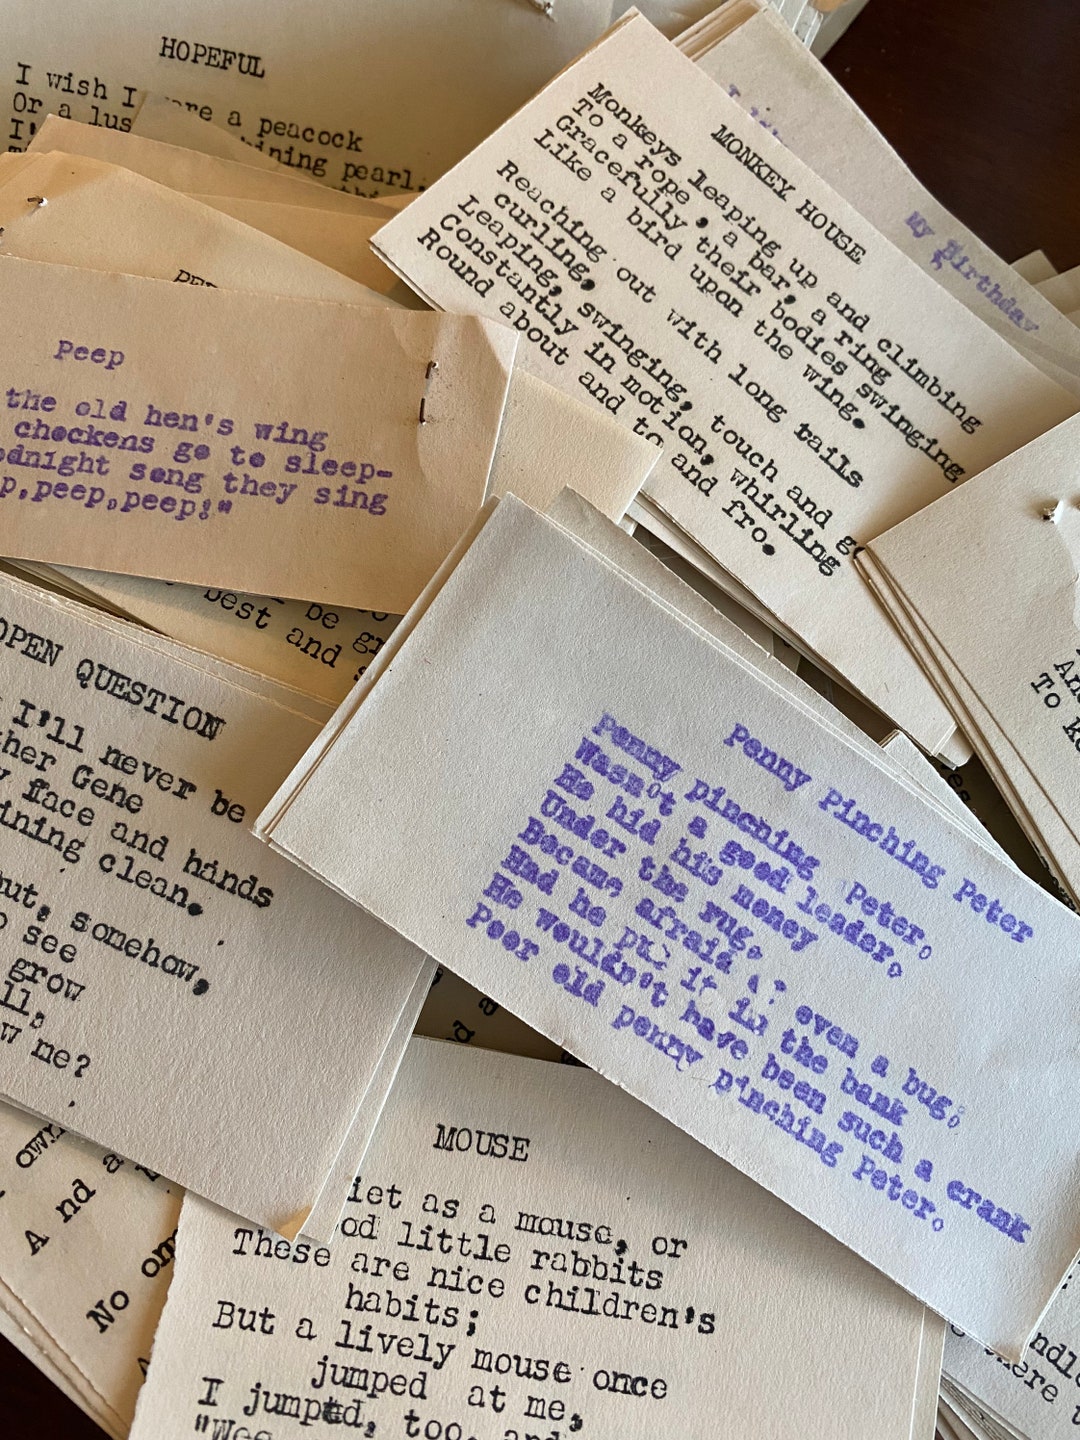 HOPEFUL
I wish I were a peacock
Or a lus ining pearl,
MONKEY HOUSE
Monkeys leaping up and climbing
To a rope , a bar, a ring
Gracefully their bodies swinging
Like a bird upon the wing.
Reaching out with long tails
curling,
Leaping, swinging, touch and go
Constantly in motion, whirling
Round about and to and fro.
My Birthday
Peep
the old hen's wing
chockens go to sleep-
dnight song they sing
p,peep,peep!"
be gr
best and
OPEN QUESTION
I'll never be
ther Gene
y face and hinds
ining clean.
ut, somehow,
o see
grow
ll,
ow me?
Penny Pinching Peter
Penny pinching Peter,
Wasn't a good leader.
He hid his money
Under the rug,
Became afraid of even a bug;
Had he put it in the bank
He wouldn't have been such a crank
Poor old penny pinching Peter.
To k
own
And a
No
MOUSE
iet as a mouse, or
od little rabbits
These are nice children's
habits;
But a lively mouse once
jumped at me,
I jumpted, too, and
"Wee
ndle
there